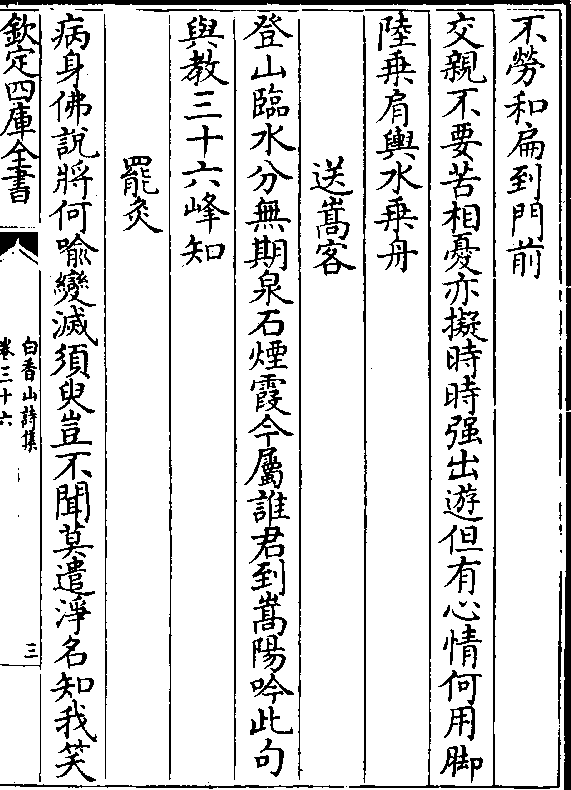 不勞和扁到門前
交親不要苦相憂亦擬時時强出遊但有心情何用脚
陸乗肩輿水乗舟
送嵩客
登山臨水分無期泉石煙霞今屬誰君到嵩陽吟此句
與教三十六峰知
罷灸
病身佛說將何喻變滅須臾豈不聞莫遣淨名知我笑
欽定四庫全書
白香山詩集
卷三十六
三